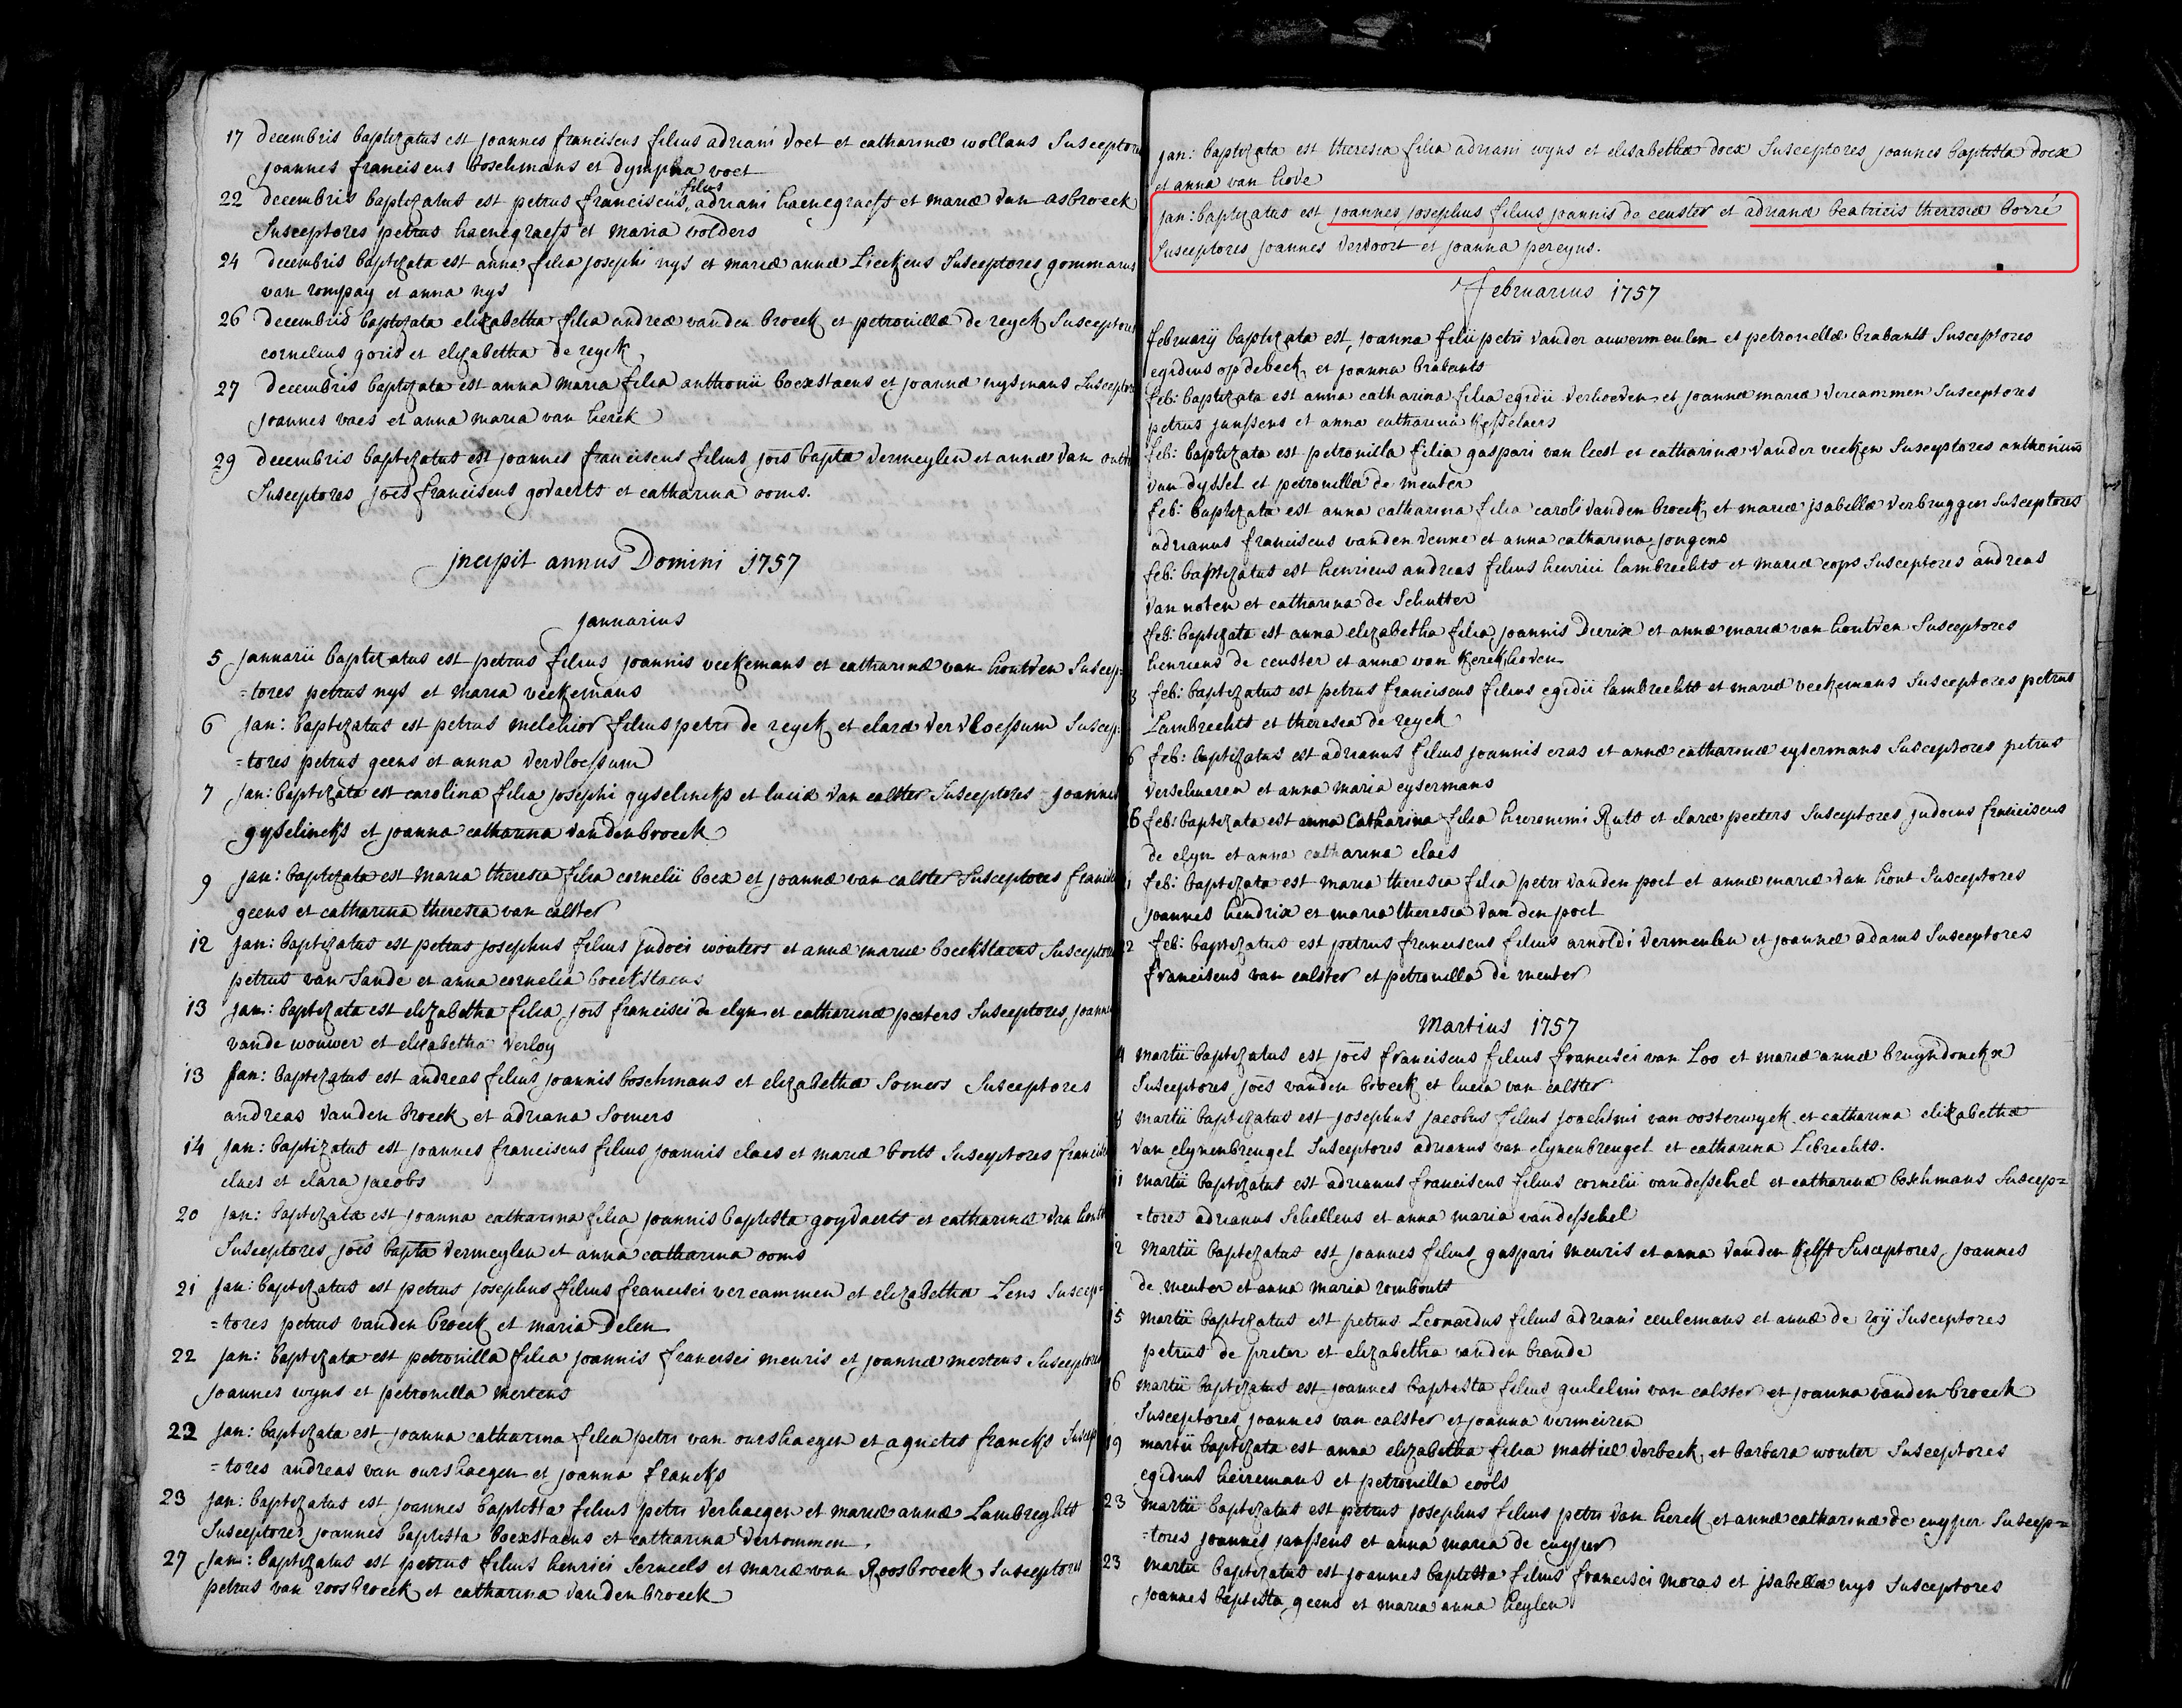 17 decembris baptizatus est joannes franciscus filius adriani voet et catharinæ wollans Susceptores
joannes franciscus boschmans et dympha voet
filius
22 decembris baptizatus est petrus franciscus adriani haenegraefs et mariæ van asbroeck
Susceptores petrus haenegraefs et maria wolders
24 decembris baptizata est anna filia josephi nys et mariæ annæ Lieckens Susceptores gommarus
van rompay et anna nys
26 decembris baptizata elizabetha filia andreæ vanden broeck et petronillæ de reyck Susceptores
cornelius goris et elizabetha de reyck
27 decembris baptizata est anna maria filia anthonii boexstaens et joannæ nysmans Susceptores
joannes vaes et anna maria van herck
29 decembris baptizatus est joannes franciscus filius jois bapta vermeylen et annæ van
Susceptores jois franciscus govaerts et catharina ooms.
jncipit annus Domini 1757
januarius
5 januarii baptizatus est petrus filius joannis veekemans et catharinæ van houtven Suscep=
=tores petrus nys et maria veekemans
6 jan: baptizatus est petrus melchior filius petri de reyck et claræ vervloessum Suscep=
=tores petrus geens et anna vervloessum
7 jan: baptizata est carolina filia josephi gyselincks et luciæ van calster Susceptores joannes
gyselincks et joanna catharina vandenbroeck
9 jan: baptizata est maria theresia filia cornelii boex et joannæ van calster Susceptores
geens et catharina theresia van calster
12 jan: baptizatus est petrus josephus filius judoci wouters et annæ mariæ boeckstaens Susceptores
petrus van Sande et anna cornelia boeckstaens
13 jan: baptizata est elizabetha filia jois francisci de clyn et catharinæ peeters Susceptores joannes
vande wouwer et elizabetha verloy
13 jan: baptizatus est andreas filius joannis boschmans et elizabethæ Somers Susceptores
andreas vanden broeck et adriana Somers
14 jan: baptizatus est joannes franciscus filius joannis claes et mariæ borts Susceptores
claes et clara jacobs
20 jan: baptizata est joanna catharina filia joannis baptista goyvaerts et catharinæ van
Susceptores jois bapta vermeylen et anna catharina ooms
21 jan: baptizatus est petrus josephus filius francisci vercammen et elizabethæ Lens Suscep=
=tores petrus vanden broeck et maria Delen
22 jan: baptizata est petronilla filia joannis francisci meuris et joannæ mertens Susceptores
joannes wyns et petronilla mertens
22 jan: baptizata est joanna catharina filia petri van ourshaegen et agnetis francks Suscep
=tores andreas van ourshaegen et joanna francks
23 jan: baptizatus est joannes baptista filius petri verhaegen et mariæ annæ Lambreghts
Susceptores joannes baptista boexstaens et catharina vertommen.
27 jan: baptizatus est petrus filius henrici Serneels et mariæ van Roosbroeck Susceptores
petrus van roosbroeck et catharina vandenbroeck
jan: baptizata est theresia filia adriani wyns et elisabethæ docx Susceptores joannes baptista docx
et anna van hove
jan: baptizatus est joannes josephus filius joannis de ceuster et adrianæ beatricis theresiæ borré
Susceptores joannes Vervoort et joanna pereyns.
Februarius 1757
februarij baptizata est joanna filii petri vander auwermeulen et petronellæ brabants Susceptores
egidius opdebeck et joanna brabants
feb: baptizata est anna catharina filia egidii verhoeven et joannæ mariæ vercammen Susceptores
petrus janssens et anna catharina Kesselaers
feb: baptizata est petronilla filia gaspari van leest et catharinæ vander veeken Susceptores anthonius
van dyssel et petronilla de menter
feb: baptizata est anna catharina filia caroli vanden broeck et mariæ jsabellæ verbruggen Susceptores
adrianus franciscus vanden venne et anna catharina jongens
feb: baptizatus est henricus andreas filius henrici lambrechts et mariæ cops Susceptores andreas
van noten et catharina de Schutter
feb: baptizata est anna elizabetha filia joannis Dierix et annæ mariæ van houtven Susceptores
henricus de ceuster et anna van Kerckhoven
3 feb: baptizatus est petrus franciscus filius egidii lambrechts et mariæ veekemans Susceptores petrus
Lambrechts et theresia de reyck
6 feb: baptizatus est adrianus filius joannis cras et annæ catharinæ eysermans Susceptores petrus
verschueren et anna maria eysermans
6 feb: baptizata est anna Catharina filia hieronimi Ruts et claræ peeters Susceptores judocus franciscus
de clyn et anna catharina claes
feb: baptizata est maria theresia filia petri vanden poel et annæ mariæ van hout Susceptores
joannes hendrix et maria theresia van den poel
2 feb: baptizatus est petrus franciscus filius arnoldi vermeulen et joannæ adams Susceptores
franciscus van calster et petronilla de menter
Martius 1757
4 martii baptizatus est jois franciscus filius francisci van Loo et mariæ annæ bruyndonckx
Susceptores jois vanden broeck et lucia van calster
martii baptizatus est josephus jacobus filius joachimi van oosterwyck et catharina elizabethæ
van clynenbreugel Susceptores adrianus van clynenbreugel et catharina Librechts.
11 martii baptizatus est adrianus franciscus filius cornelii vandesschel et catharinæ boschmans Suscep=
=tores adrianus Schellens et anna maria vandesschel
12 Martii baptizatus est joannes filius gaspari meuris et anna vanden Kelft Susceptores joannes
de menter et anna maria rombouts
15 martii baptizatus est petrus Leonardus filius adriani ceulemans et annæ de roÿ Susceptores
petrus de preter et elizabetha vanden brande
16 martii baptizatus est joannes baptista filius guilelmi van calster et joanna vanden broeck
Susceptores joannes van calster et joanna vermeiren
19 martii baptizata est anna elizabetha filia mattiæ verbeeck et barbara wouter Susceptores
egidius heiremans et petronilla cools
23 martii baptizatus est petrus josephus filius petri van herck et annæ catharinæ de cuyper Suscep=
=tores joannes janssens et anna maria de cuyper
23 martii baptizatus est joannes baptista filius francisci moras et jsabellæ nys Susceptores
joannes baptista geens et maria anna heylen